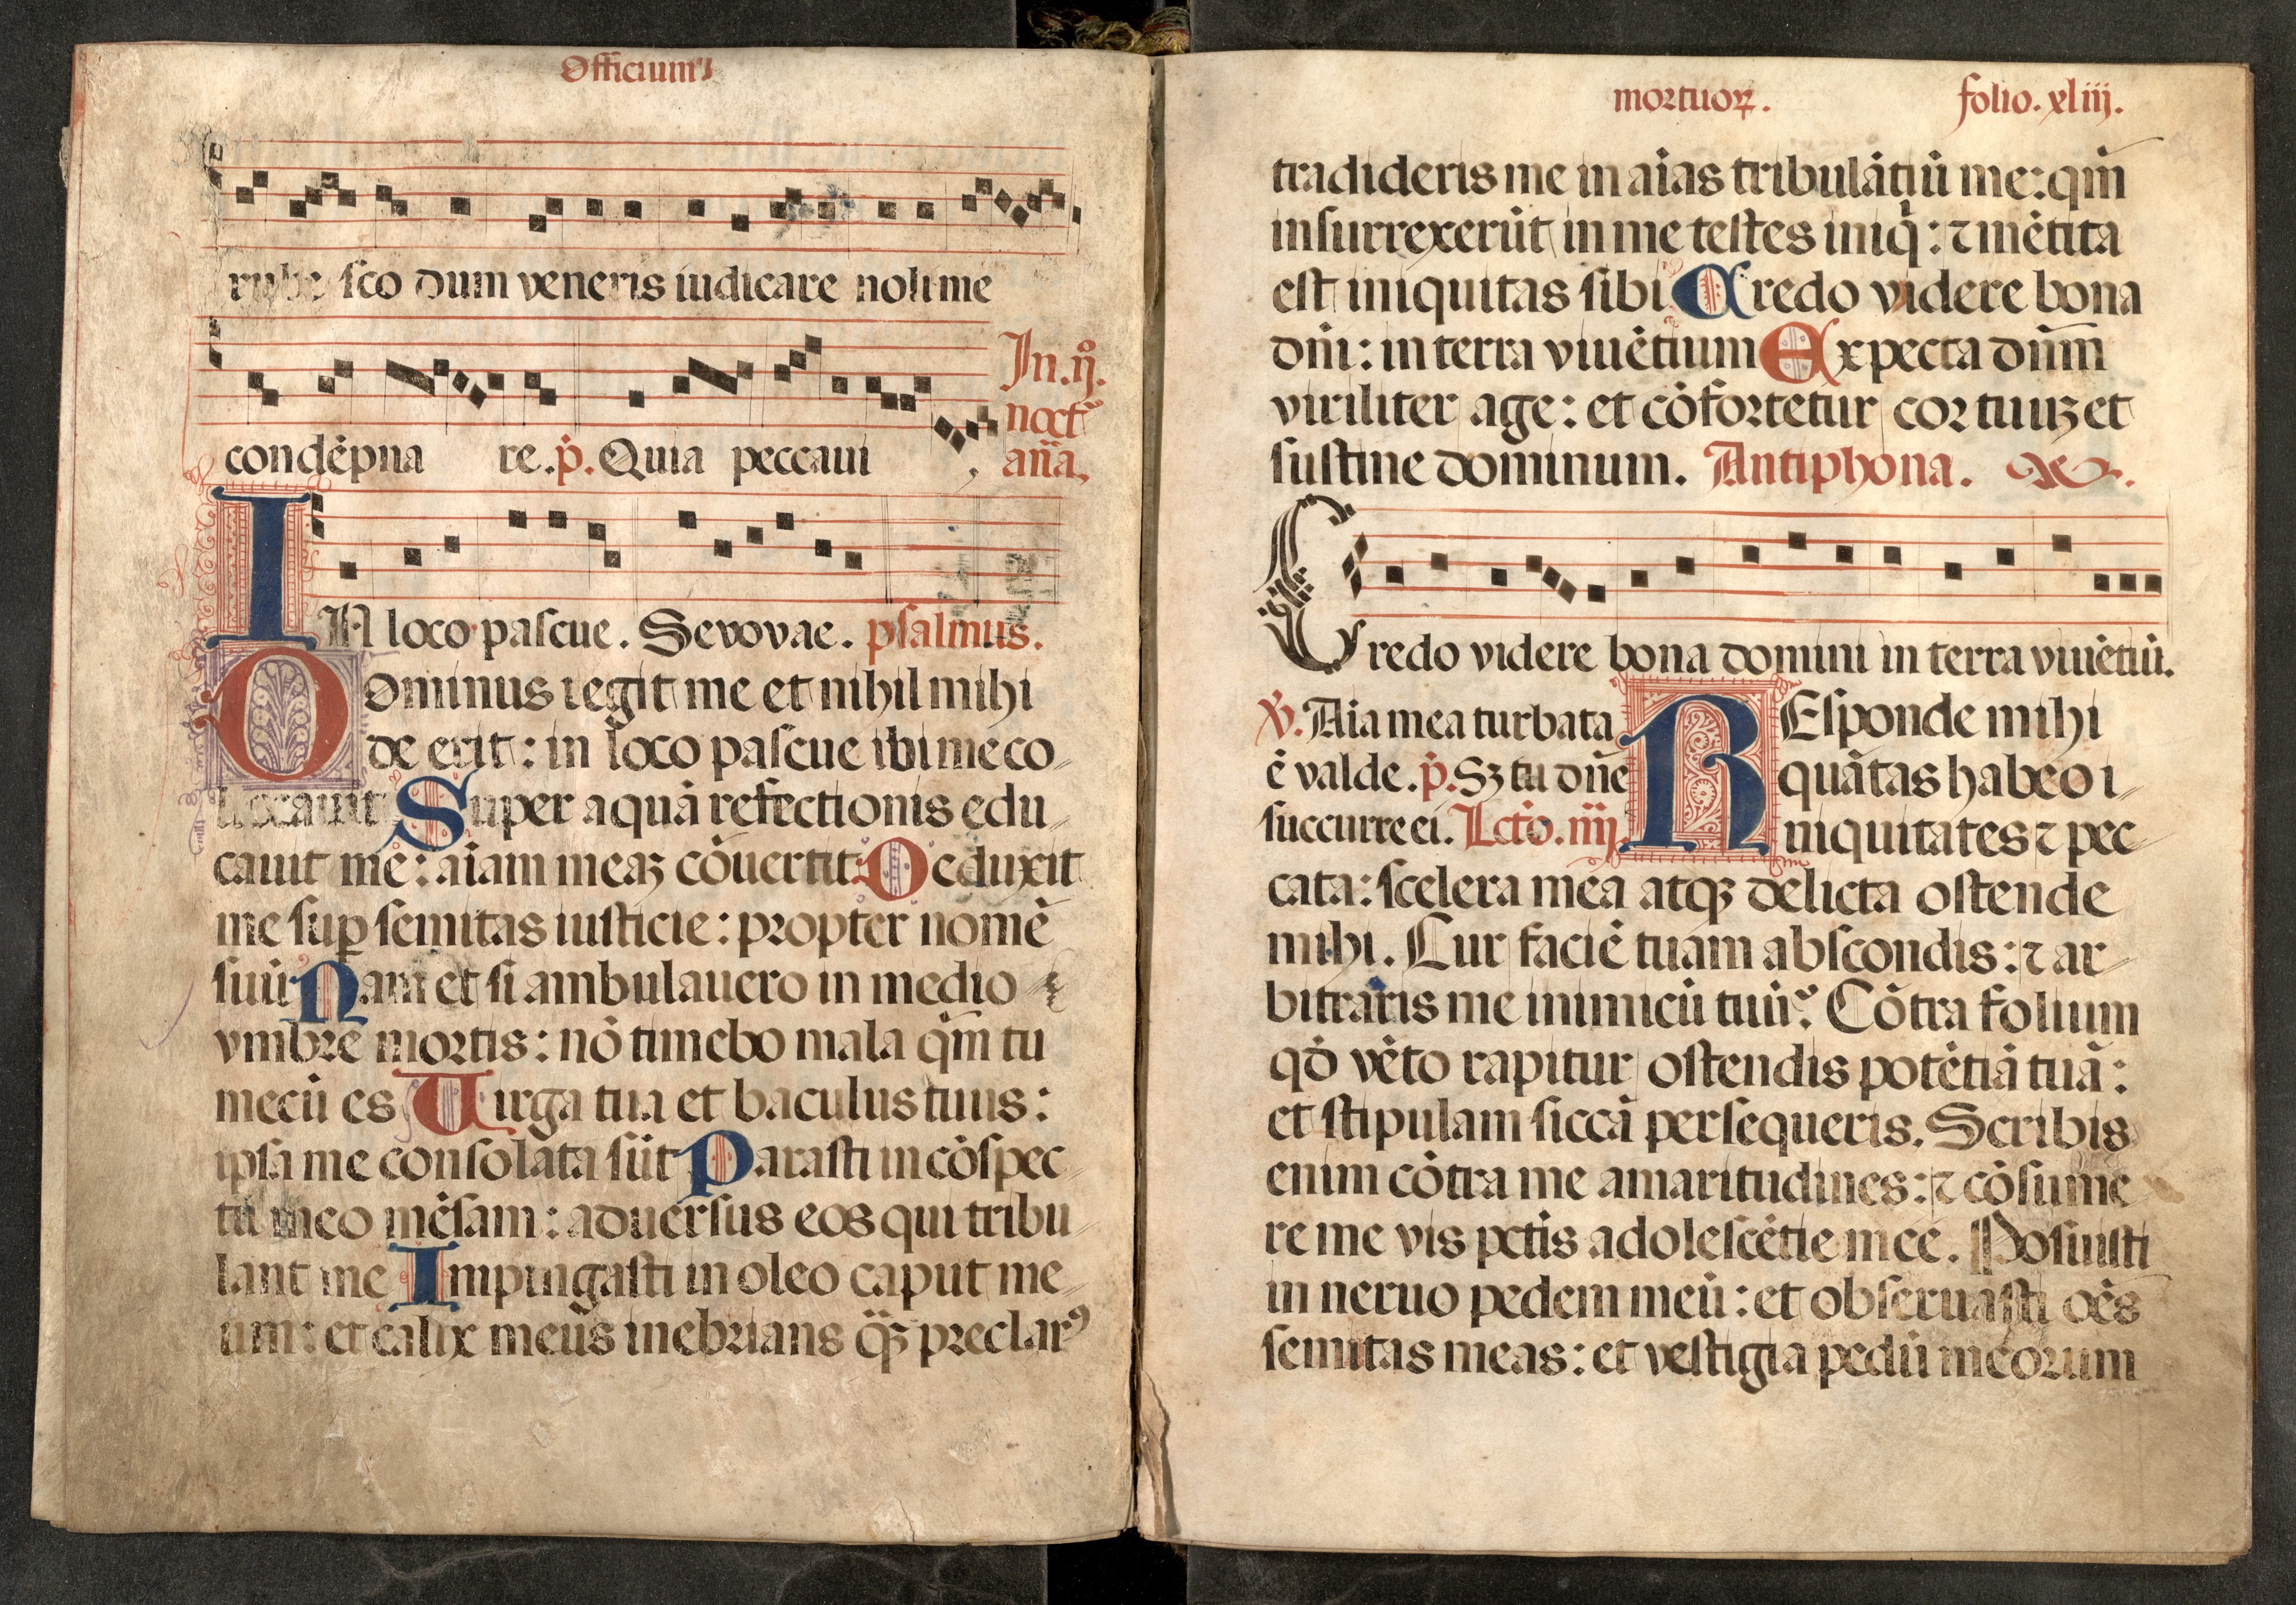 Officium
rube sco dum veneris iudicare noli me
In.ij.º
noct
condēpna re. p̄. Quia peccaui
añā.
IN loco pascue. Sevovae. psalmus.
Dominus regit me et nihil mihi
de erit: in loco pascue ibi me co
llocauit Super aquā refectionis edu
cauit me: aīam meaꝫ cōuertit. Deduxit
me suꝑ semitas iusticie: propter nomē
suū Nam et si ambulauero in medio
vmbre mortis: nō timebo mala qm̄ tu
mecū es Uirga tua et baculus tuus:
ipsa me consolata sūt Parasti in cōspec
tu meo mēsam: aduersus eos qui tribu
lant me Impingasti in oleo caput me
um: et calix meus inebrians q̄ꝫ preclarꝰ
mortuoꝝ. folio. xliij.
tradideris me in aīas tribulātiū me: qm̄
insurrexerūt in me testes iniq̄: ⁊ mētita
est iniquitas sibi Credo videre bona
dn̄i: in terra viuētium Expecta dn̄m
viriliter age: et cōfortetur cor tuuꝫ et
sustine dominum. Antiphona.
Credo videre bona domini in terra viuētiū.
℣. Aīa mea turbata
ē valde. p̄. Sꝫ tu dn̄e
succurre ei. Lctō. iiij.
REsponde mihi
quātas habeo i
niquitates ⁊ pec
cata: scelera mea atqꝫ delicta ostende
mihi. Cur faciē tuam abscondis: ⁊ ar
bitraris me inimicū tuū? Cōtra folium
qd̄ vēto rapitur ostendis potētiā tuā:
et stipulam siccā persequeris. Scribis
enim cōtra me amaritudines: ⁊ cōsume
re me vis pctis adolescētie mee. Posuisti
in neruo pedem meū: et obseruasti oēs
semitas meas: et vestigia pedū meorum